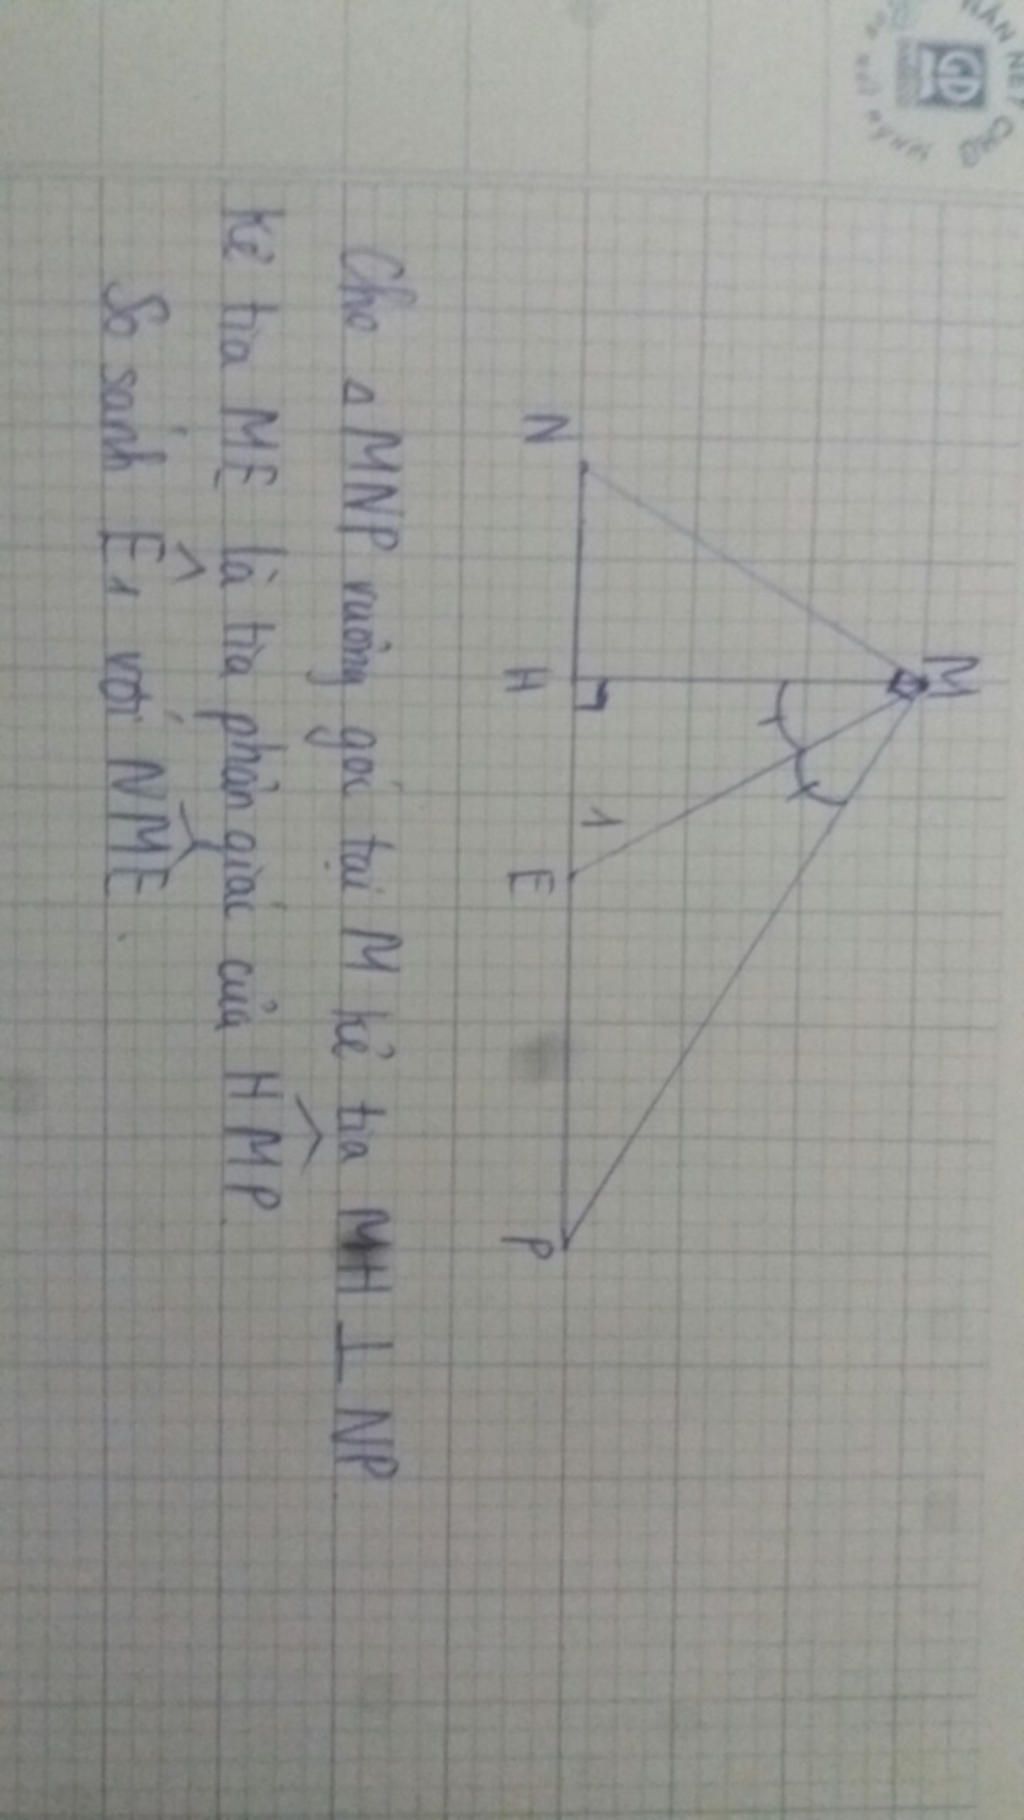 M
N
H
1
E
P
Cho △ MNP vuông góc tại M kẻ tia MH ⊥ NP
Kẻ tia ME là tia phân giác của HMP
So sánh E1 với NME.